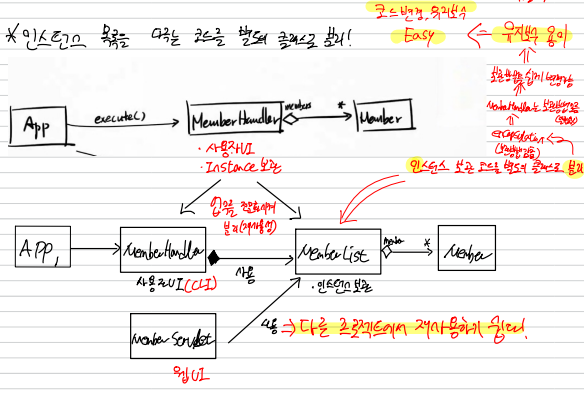 코드변경, 유지보수
* 인스턴스 목록을 다루는 코드를 별도의 클래스로 분리!
Easy
유지보수 용이
App
execute()
MemberHandler
members
*
Member
MemberHandler는 보관방법을
encapsulation
· 사용자UI
· Instance 보관
인스턴스 보관 코드를 별도의 클래스로 분리
분리(재사용성)
APP,
MemberHandler
사용
MemberList
member
*
Member
사용자UI(CLI)
· 인스턴스 보관
Member Servlet
사용
⇒ 다른 프로젝트에서 재사용하기 쉽다!
웹UI